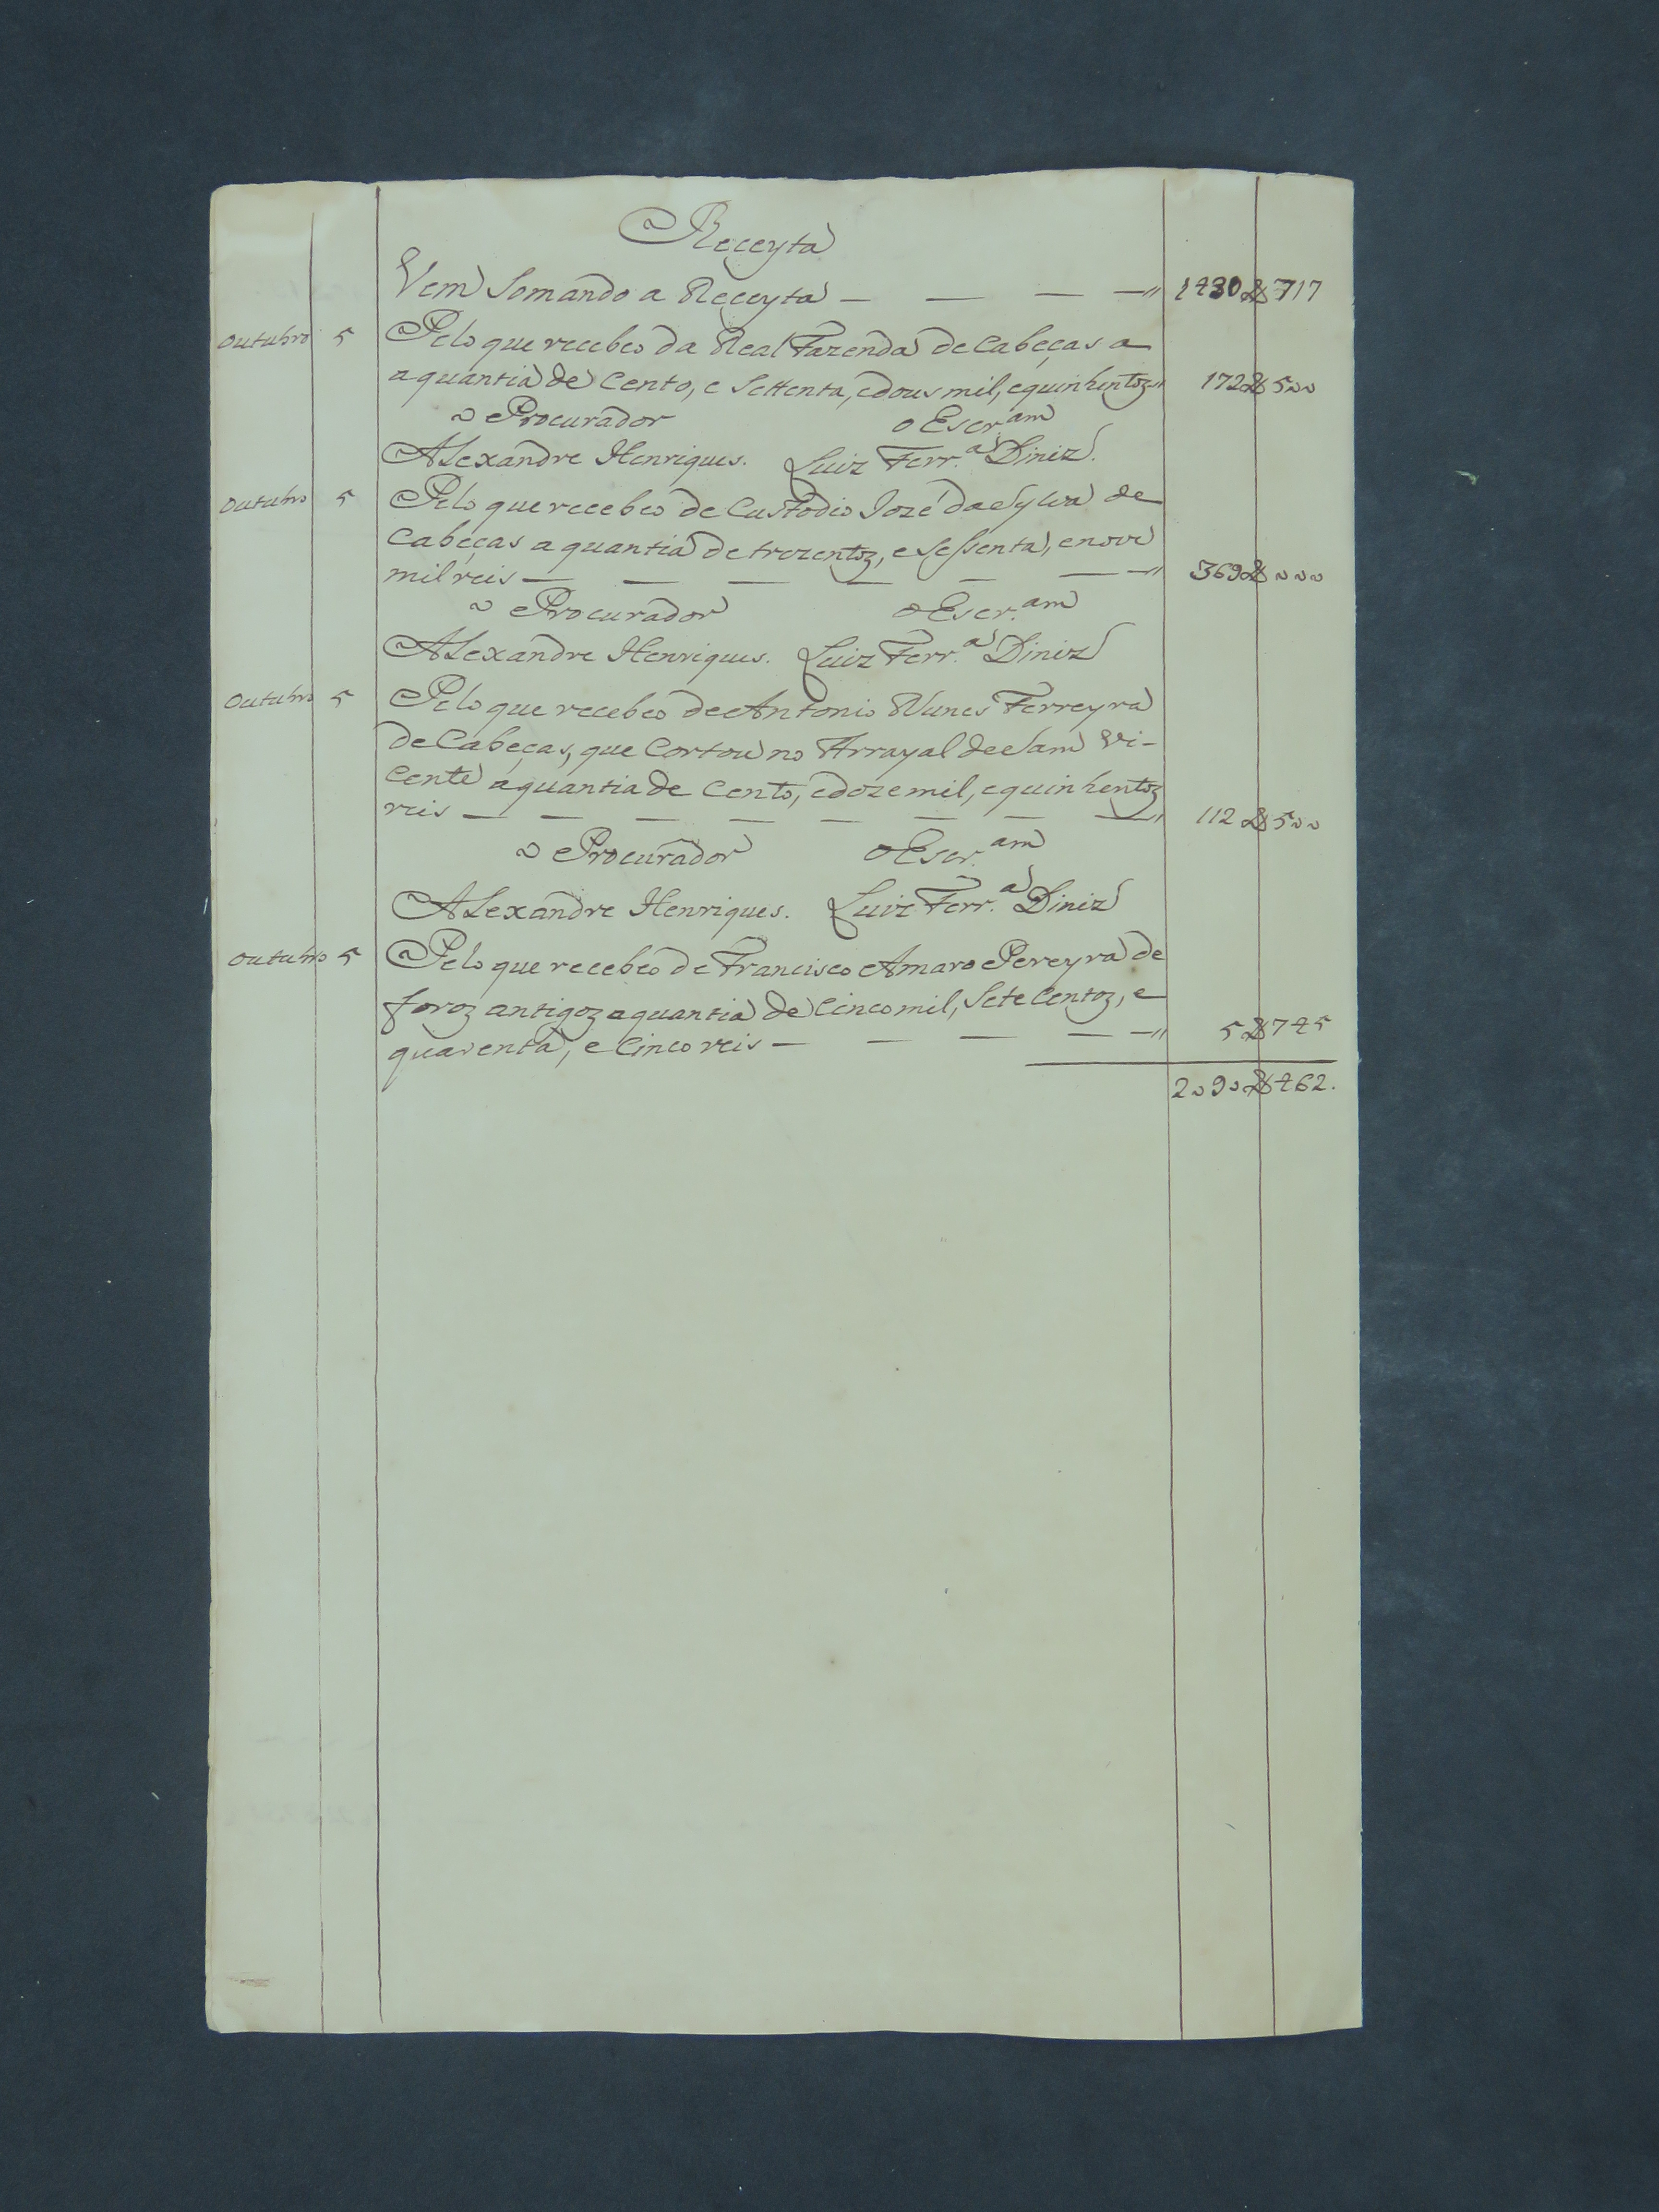 Receyta
Vem Somando a Receyta — — — —" 1430$717
Outubro 5 Pelo que recebeo da Real Fazenda de Cabeças a
a quantia de Cento, e Settenta, e dous mil, e quinhentoz" 172$500
o Procurador o Escr.am
Alexandre Henriques. Luiz Ferr.a Diniz.
Outubro 5 Pelo que recebeo de Custodio Jozé da Sylva de
Cabeças a quantia de trezentoz, e sessenta, e nove
mil reis — — — — — — —" 369$000
o Procurador o Escr.am
Alexandre Henriques. Luiz Ferr.a Diniz
Outubro 5 Pelo que recebeo de Antonio Nunes Ferreyra
de Cabeças, que Cortou no Arrayal de Sam Vi-
cente a quantia de Cento, e doze mil, e quinhentoz
reis — — — — — — — —" 112$500
o Procurador o Escr.am
Alexandre Henriques. Luiz Ferr.a Diniz
Outubro 5 Pelo que recebeo de Francisco Amaro Pereyra de
foroz antigoz a quantia de Cinco mil, Sete Centoz, e
quarenta, e Cinco reis — — — — —" 5$745
2090$462.